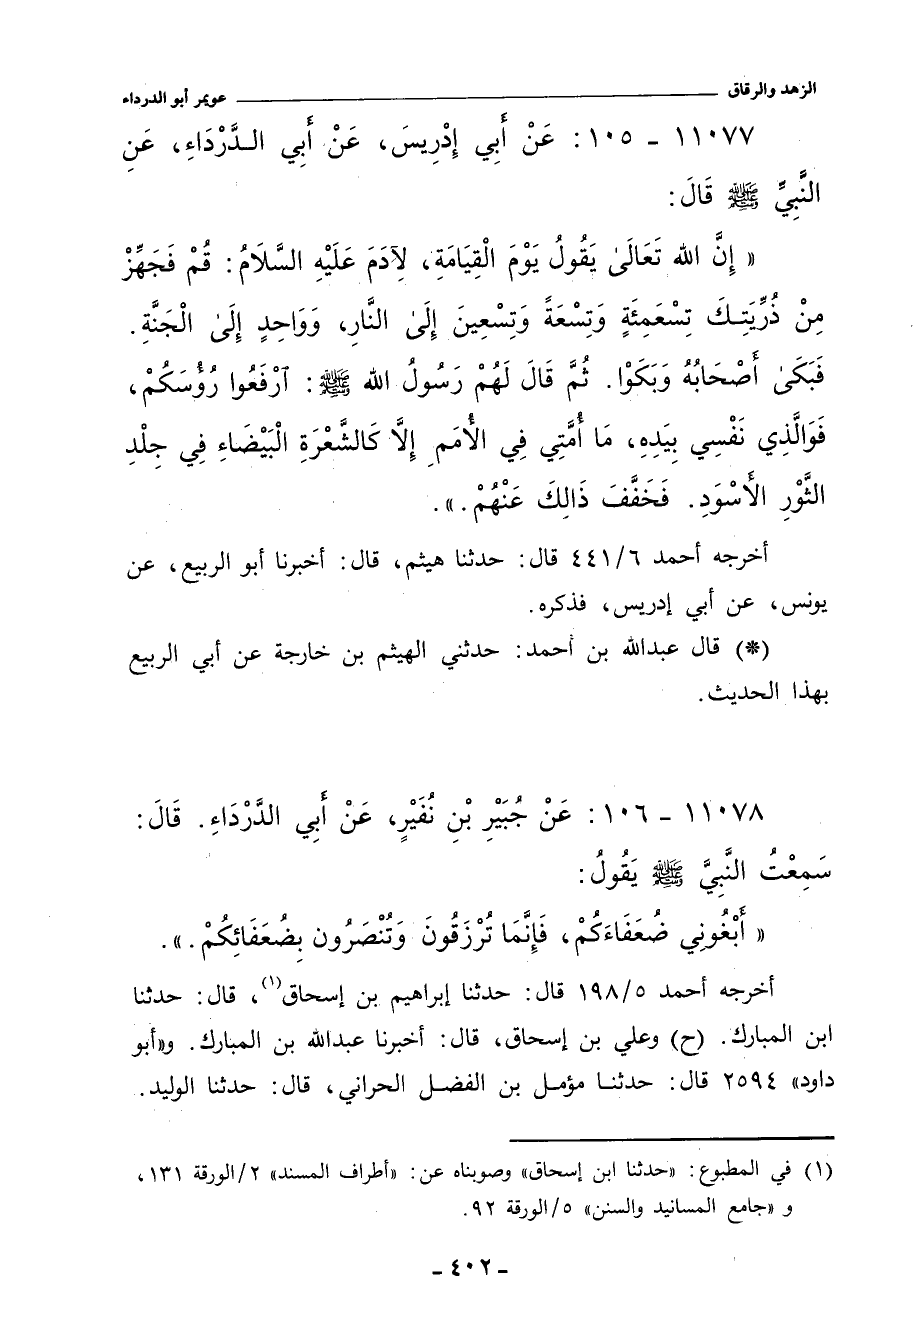 الزهد والرقاق ــــــــــ عويمر أبو الدرداء
١١٠٧٧ - ١٠٥: عَنْ أَبِي إِدْرِيسَ، عَنْ أَبِي الـدَّرْدَاءِ، عَنِ
النَّبِيِّ ﷺ قَالَ:
« إِنَّ الله تَعَالَىٰ يَقُولُ يَوْمَ الْقِيَامَةِ، لِآدَمَ عَلَيْهِ السَّلَامُ: قُمْ فَجَهِّزْ
مِنْ ذُرِّيَتِـكَ تِسْعَمِئَةٍ وَتِسْعَةً وَتِسْعِينَ إِلَىٰ النَّارِ، وَوَاحِدٍ إِلَىٰ الْجَنَّةِ.
فَبَكَىٰ أَصْحَابُهُ وَبَكَوْا. ثُمَّ قَالَ لَهُمْ رَسُولُ الله ﷺ: ٱرْفَعُوا رُؤُسَكُمْ،
فَوَالَّذِي نَفْسِي بِيَدِهِ، مَا أُمَّتِي فِي الأُمَمِ إِلَّا كَالشَّعْرَةِ الْبَيْضَاءِ فِي جِلْدِ
الثَّوْرِ الأَسْوَدِ. فَخَفَّفَ ذَالِكَ عَنْهُمْ.».
أخرجه أحمد ٤٤١/٦ قال: حدثنا هيثم، قال: أخبرنا أبو الربيع، عن
يونس، عن أبي إدريس، فذكره.
(*) قال عبدالله بن أحمد: حدثني الهيثم بن خارجة عن أبي الربيع
بهذا الحديث.
١١٠٧٨ - ١٠٦: عَنْ جُبَيْرِ بْنِ نُفَيْرٍ، عَنْ أَبِي الدَّرْدَاءِ. قَالَ:
سَمِعْتُ النَّبِيَّ ﷺ يَقُولُ:
« أَبْغُونِي ضُعَفَاءَكُمْ، فَإِنَّمَا تُرْزَقُونَ وَتُنْصَرُون بِضُعَفَائِكُمْ.».
أخرجه أحمد ١٩٨/٥ قال: حدثنا إبراهيم بن إسحاق(١)، قال: حدثنا
ابن المبارك. (ح) وعلي بن إسحاق، قال: أخبرنا عبدالله بن المبارك. و«أبو
داود» ٢٥٩٤ قال: حدثنـا مؤمـل بن الفضـل الحراني، قال: حدثنـا الوليد.
(١) في المطبوع: «حدثنا ابن إسحاق» وصوبناه عن: «أطراف المسند» ٢/الورقة ١٣١،
و «جامع المسانيد والسنن» ٥/الورقة ٩٢.
- ٤٠٢ -